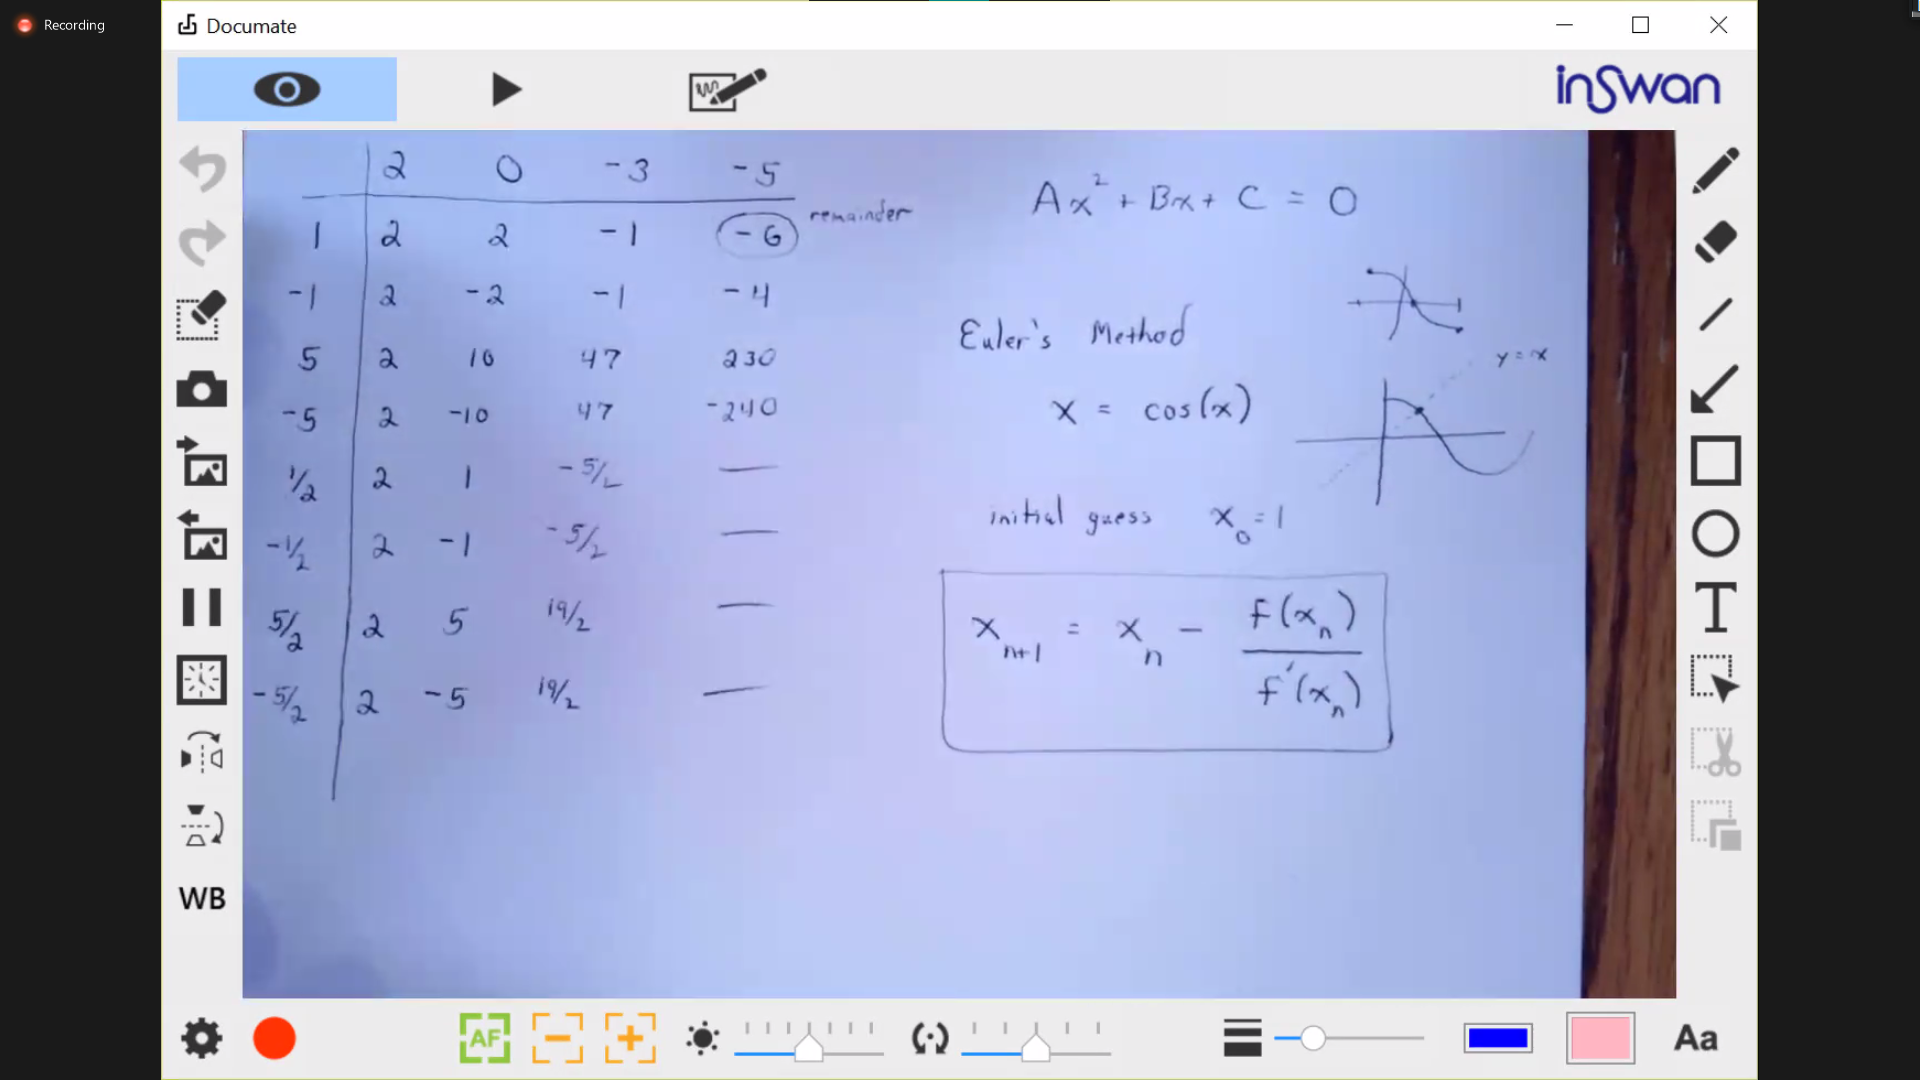 Recording
Documate
inSwan
2 0 -3 -5
1 2 2 -1 -6 remainder
-1 2 -2 -1 -4
5 2 10 47 230
-5 2 -10 47 -240
1/2 2 1 -5/2 —
-1/2 2 -1 -5/2 —
5/2 2 5 19/2 —
-5/2 2 -5 19/2 —
Ax² + Bx + C = 0
Euler's Method
y = x
x = cos(x)
initial guess x₀ = 1
xₙ₊₁ = xₙ - f(xₙ) / f'(xₙ)
T
WB
AF
Aa